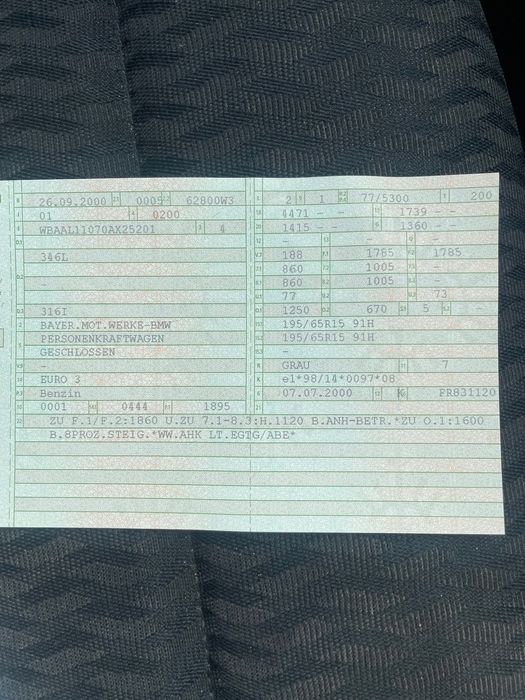 26.09.2000 0005 62800W3
01 0200
WBAAL11070AX25201 4
346L
-
316I
BAYER.MOT.WERKE-BMW
PERSONENKRAFTWAGEN
GESCHLOSSEN
-
EURO 3
Benzin
0001 0444 1895
2 1 77/5300 200
4471 - - 1739 - -
1415 - - 1360 - -
- - -
188 1785 1785
860 1005 -
860 1005 -
77 73
1250 670 5 -
195/65R15 91H
195/65R15 91H
-
GRAU 7
e1*98/14*0097*08
07.07.2000 K FR831120
ZU F.1/F.2:1860 U.ZU 7.1-8.3:H.1120 B.ANH-BETR.*ZU O.1:1600
B.8PROZ.STEIG.*WW.AHK LT.EGTG/ABE*